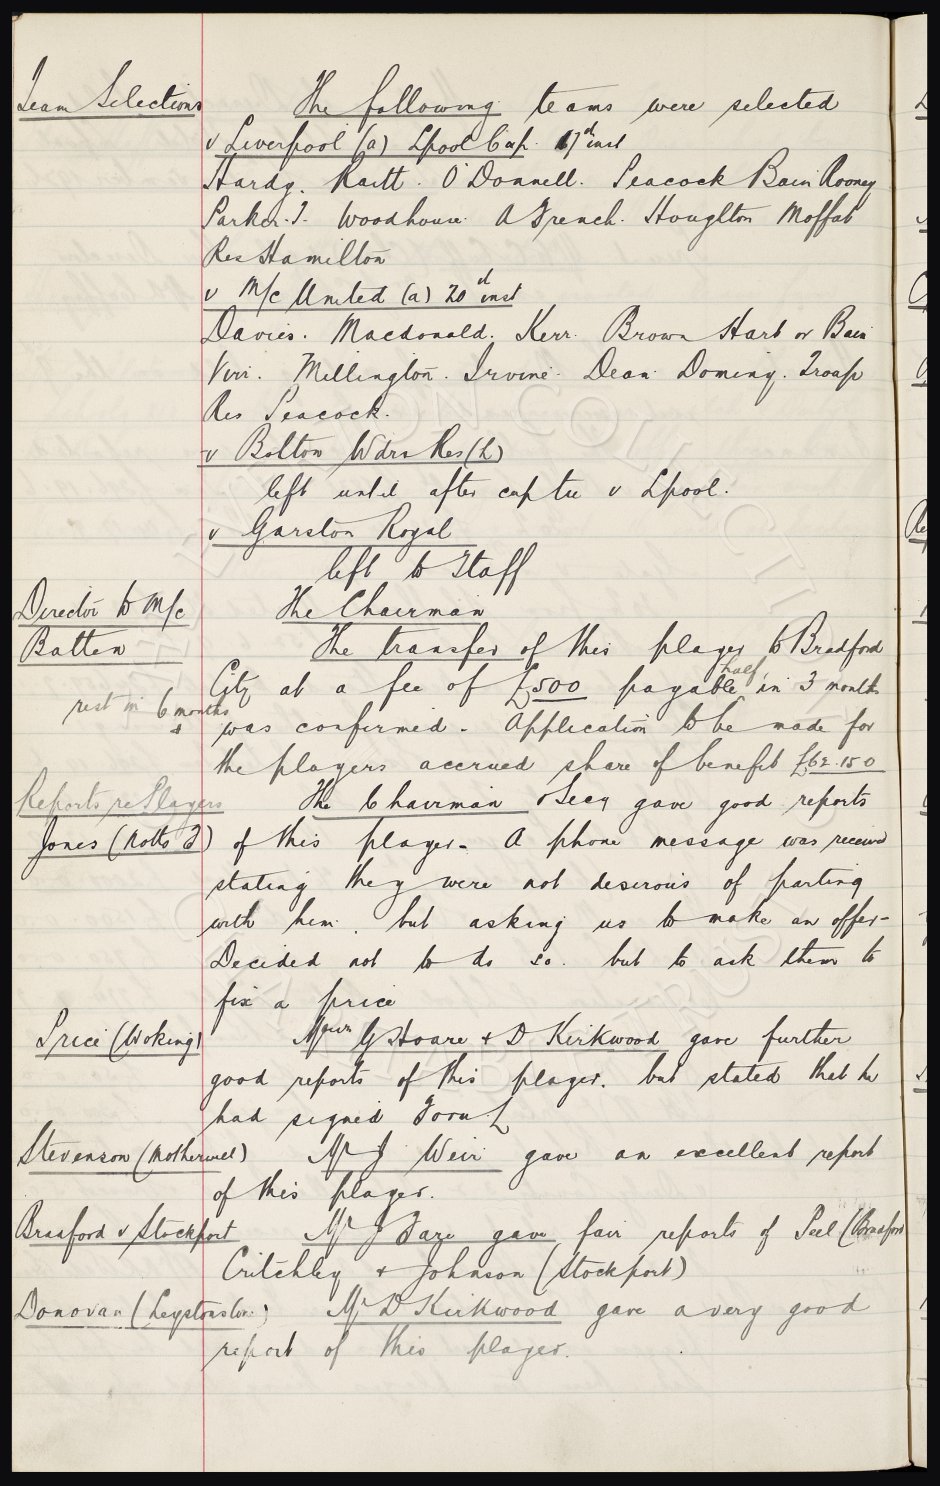 Team Selections The following teams were selected
v Liverpool (a) Lpool Cup. 17th inst
Hardy. Raitt. O'Donnell. Peacock Bain Rooney
Parker. J. Woodhouse. A French. Houghton Moffat
Res Hamilton
v M/c United (a) 20th inst
Davies. Macdonald. Kerr. Brown Hart or Bain
Virr. Millington. Irvine. Dean. Dominy. Troup
Res Peacock.
v Bolton Wdrs Res (h)
left until after cup tie v Lpool.
v Garston Royal
left to Staff
Director to M/c The Chairman
Batten The transfer of this player to Bradford
City at a fee of £500 payable half in 3 months
rest in 6 months was confirmed. Application to be made for
the players accrued share of benefit £62.15.0
Reports re Players The Chairman & Secy gave good reports
Jones (Notts F) of this player. A phone message was received
stating they were not desirous of parting
with him, but asking us to make an offer.
Decided not to do so. but to ask them to
fix a price
Price (Woking) Messrs G Hoare & D Kirkwood gave further
good reports of this player. but stated that he
had signed Form L
Stevenson (Motherwell) Mr J Weir gave an excellent report
of this player.
Bradford v Stockport Mr J Fare gave fair reports of Peel (Bradford
Critchley & Johnson (Stockport)
Donovan (Leytonston.) Mr D Kirkwood gave a very good
report of this player.